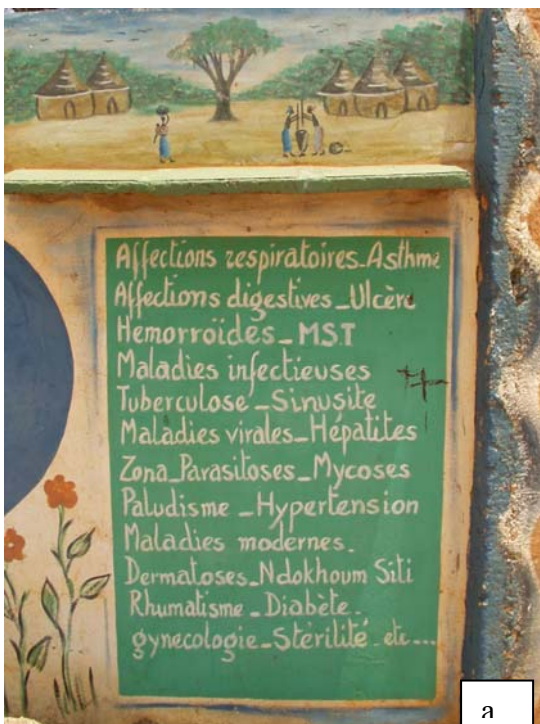 Affections respiratoires_Asthme
Affections digestives_Ulcère
Hemorroïdes_MST
Maladies infectieuses
Tuberculose_Sinusite
Maladies virales_Hépatites
Zona_Parasitoses_Mycoses
Paludisme_Hypertension
Maladies modernes.
Dermatoses_Ndokhoum Siti
Rhumatisme_Diabète.
gynecologie_Stérilité etc...
a